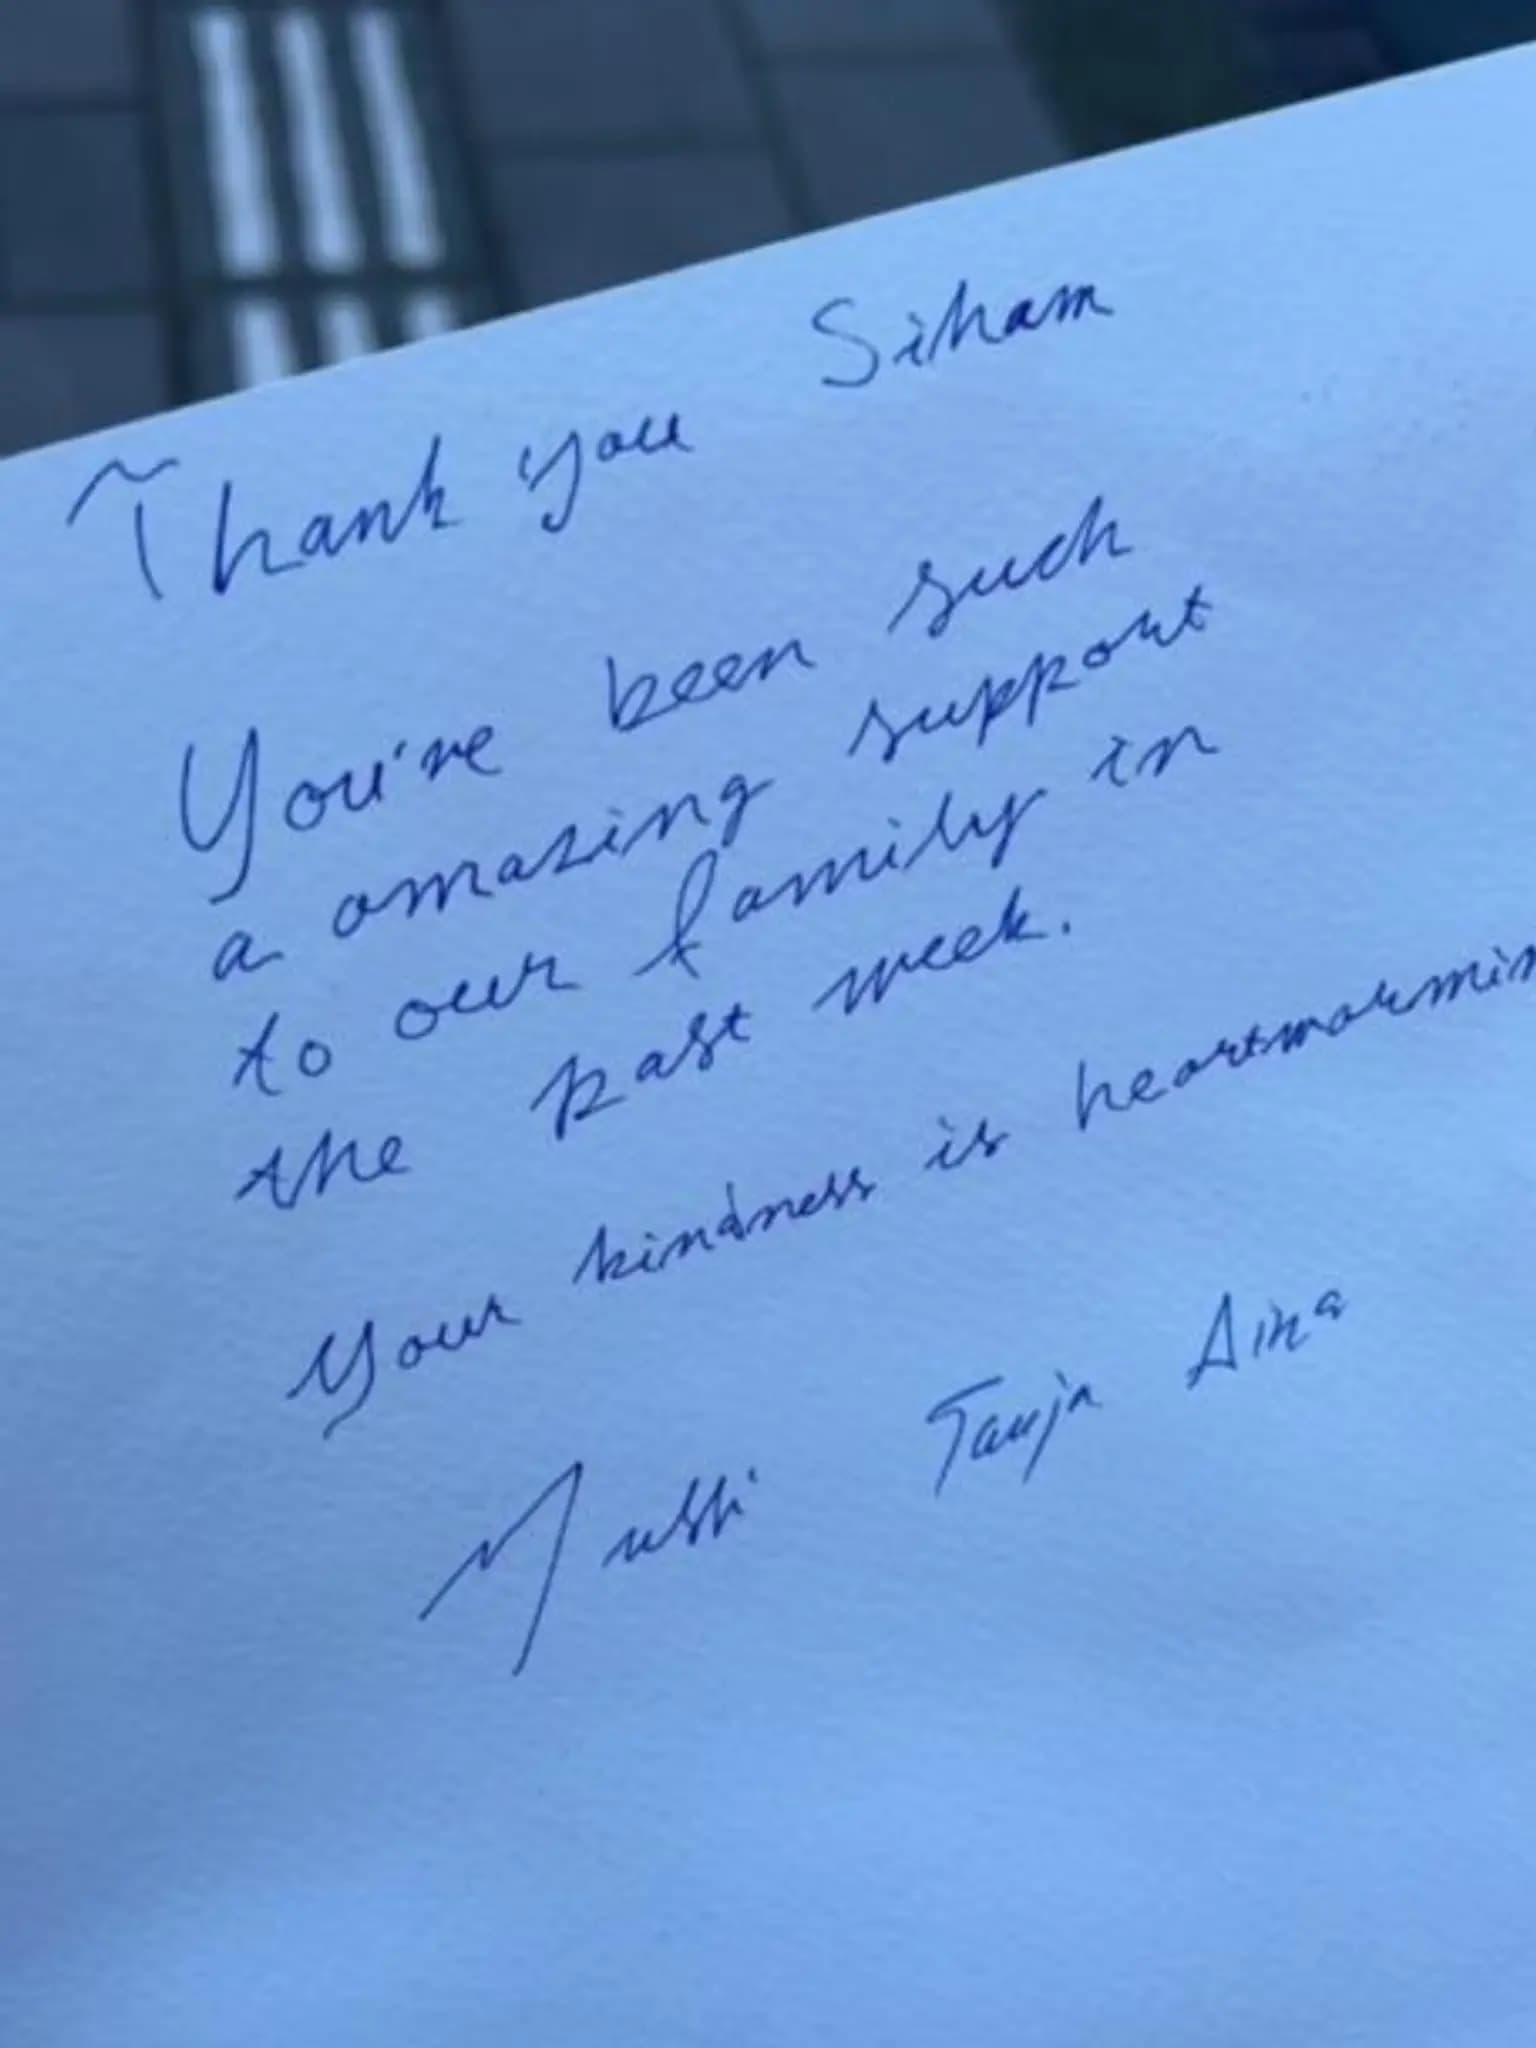 Thank you Siham
You've been such
a amazing support
to our family in
the past week.
Your kindness is heartwarmin
Tanja Aina